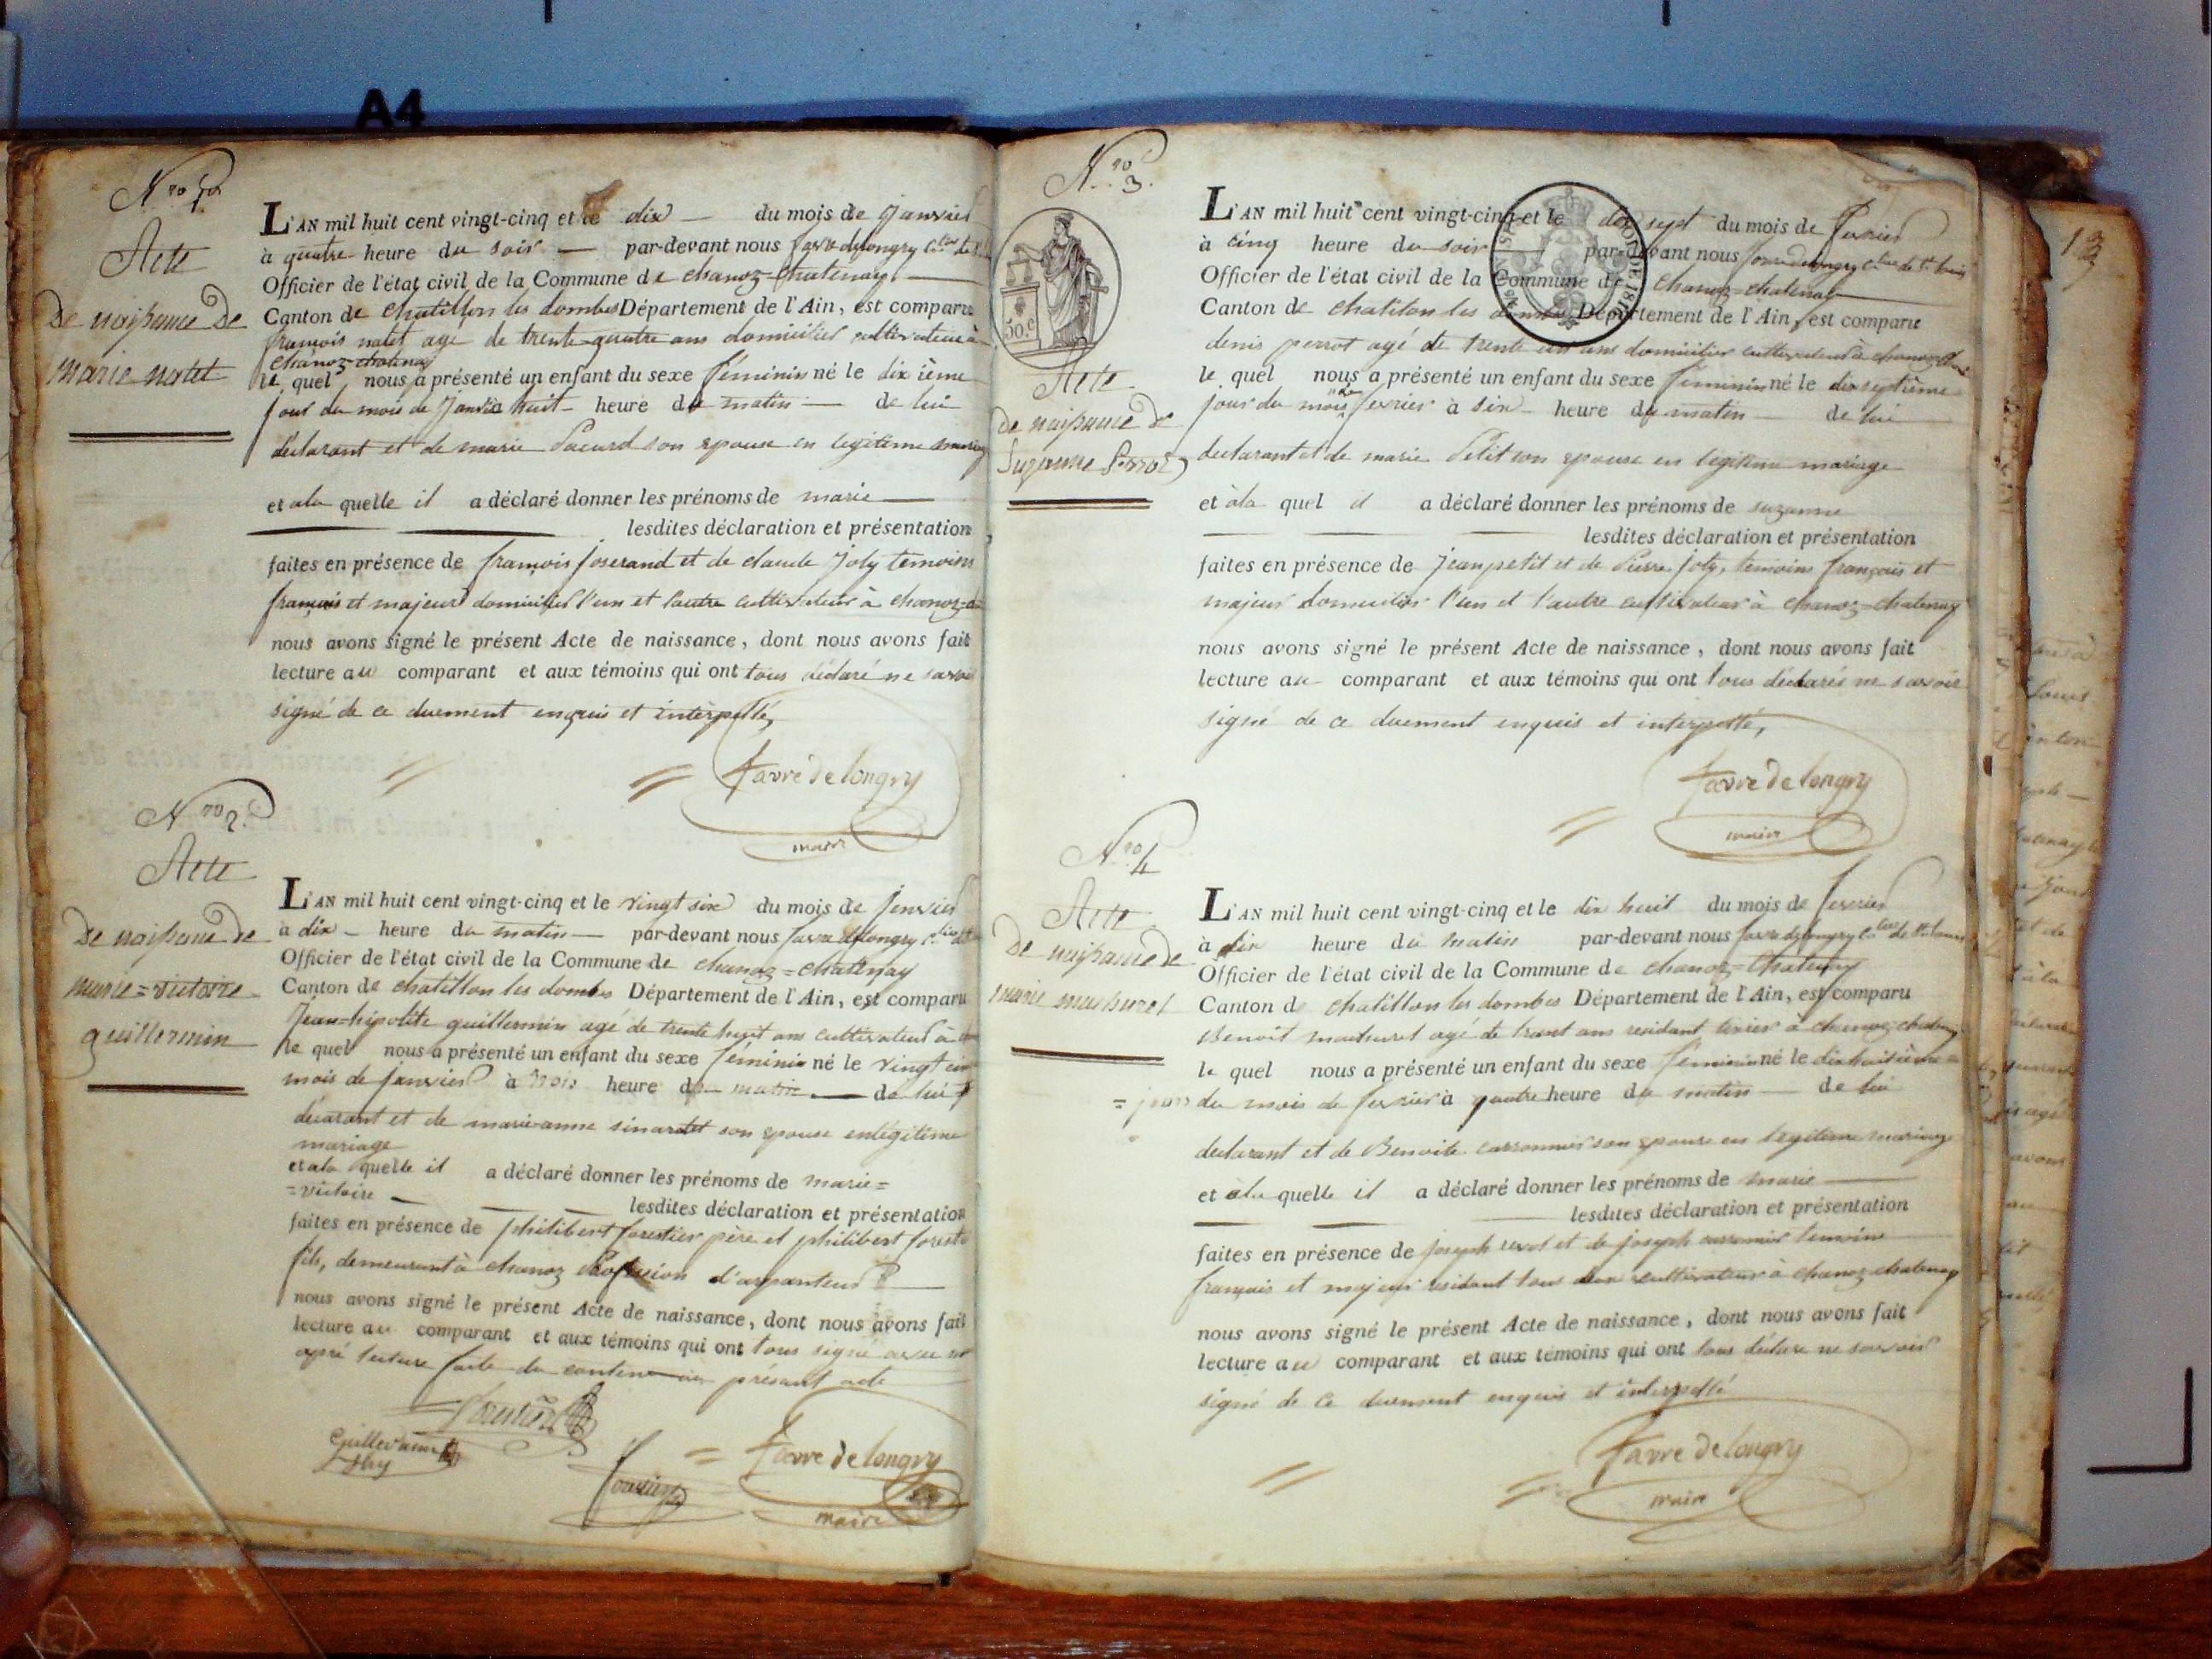 A4
N.ro 1er
Acte
De naissance De
marie natet
L'AN mil huit cent vingt-cinq et le dix du mois de Janvier
à quatre heure du soir par-devant nous favre delongry
Officier de l'état civil de la Commune de chanoz=chatenay
Canton de chatillon les dombes Département de l'Ain, est comparu
françois natet agé de trente quatre ans domicilier cultivateur à
chanoz chatenay
le quel nous a présenté un enfant du sexe féminin né le dix ième
jour du mois de Janvier huit heure du matin de lui
declarant et de marie Pacard son epouse en legitime mariag
et ala quelle il a déclaré donner les prénoms de marie
lesdites déclaration et présentation
faites en présence de françois joserand et de claude joly temoins
français et majeur domicilier l'un et l'autre cultivateur à chanoz=c
nous avons signé le présent Acte de naissance, dont nous avons fait
lecture au comparant et aux témoins qui ont tous déclaré ne savoir
signé de ce duement enquis et interpellé,
favre de longry
maire
N.ro 2.e
Acte
De naissance de
marie=victoire
guillermin
L'AN mil huit cent vingt-cinq et le vingt six du mois de janvier
à dix heure du matin par-devant nous favre delongry
Officier de l'état civil de la Commune de chanoz=chatenay
Canton de chatillon les dombes Département de l'Ain, est comparu
Jean=hipolite guillermin agé de trente huit ans cultivateur à
le quel nous a présenté un enfant du sexe féminin né le vingt
mois de janvier à trois heure du matin de lui
décarant et de marie-anne sinardet son epouse enlégitime
mariage
et ala quelle il a déclaré donner les prénoms de marie=
=victoire
lesdites déclaration et présentation
faites en présence de philibert forestier père et philibert foresti
fils, demeurant à chanoz Profession d'arpanteur
nous avons signé le présent Acte de naissance, dont nous avons fait
lecture au comparant et aux témoins qui ont tous signé avec
apré lecture faite du contenu au présant acte
favre de longry
maire
N.ro 3.e
30.c
Acte
de naissance de
Suzanne Perrot
L'AN mil huit cent vingt-cinq et le dix sept du mois de fevrier
à cinq heure du soir par-devant nous favre delongry
Officier de l'état civil de la Commune de chanoz=chatenay
Canton de chatilon les dombes Département de l'Ain, est comparu
denis perrot agé de trente un ans domicilier cultivateur à chanoz
le quel nous a présenté un enfant du sexe féminin né le dixseptième
jour du mois de fevrier à six heure du matin de lui
declarant et de marie Petit son epouse en légitime mariage
et àla quel il a déclaré donner les prénoms de suzanne
lesdites déclaration et présentation
faites en présence de jean petit et de Pierre joly, temoins français et
majeur domicilier l'un et l'autre cultivateur à chanoz=chatenay
nous avons signé le présent Acte de naissance, dont nous avons fait
lecture au comparant et aux témoins qui ont tous déclarés ne savoir
signé de ce duement enquis et interpellé,
favre de longry
maire
N.ro 4
Acte
De naissance de
marie
L'AN mil huit cent vingt-cinq et le dix huit du mois de fevrier
à dix heure du matin par-devant nous favre delongry
Officier de l'état civil de la Commune de chanoz=chatenay
Canton de chatillon les dombes Département de l'Ain, est comparu
Benoit agé de trent ans residant à chanoz chatenay
le quel nous a présenté un enfant du sexe feminin né le dixhuitième=
=jour du mois de fevrier à quatre heure du matin de lui
declarant et de Benoite carronnier son epouse en legitime mariage
et àla quelle il a déclaré donner les prénoms de marie
lesdites déclaration et présentation
faites en présence de joseph et de joseph temoins
français et majeur residant tous deux cultivateur à chanoz chatenay
nous avons signé le présent Acte de naissance, dont nous avons fait
lecture au comparant et aux témoins qui ont tous déclare ne savoir
signé de ce duement enquis et interpellé
favre de longry
maire